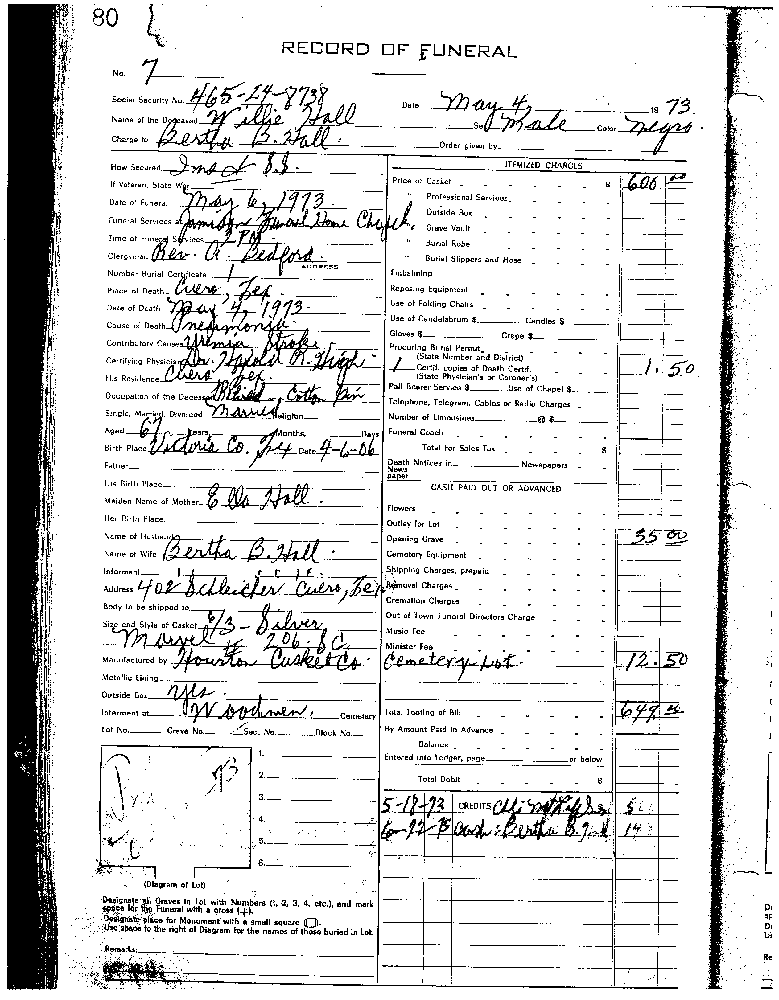 80
RECORD OF FUNERAL
No. 7
Social Security No. 465-24-8738 Date May 4, 1973
Name of the Deceased Willie Hall Sex Male Color Negro.
Charge to Bertha B. Hall. Order given by
How Secured Ins & S.S.
If Veteran, State War
Date of Funeral May 6, 1973
Funeral Services at Funeral Home Chapel.
Time of Funeral Services 2 PM
Clergyman Rev. A. Bedford. ADDRESS
Number Burial Certificate 1
Place of Death Cuero, Tex.
Date of Death May 4, 1973
Cause of Death Pneumonia
Contributory Causes Uremia Stroke
Certifying Physician Dr. Harold R. High
His Residence Cuero Tex.
Occupation of the Deceased Retired, Cotton Gin
Single, Married, Divorced Married Religion
Aged 67 Years Months Days
Birth Place Victoria Co. Tex Date 4-6-06
Father
His Birth Place
Maiden Name of Mother Ella Hall.
Her Birth Place
Name of Husband
Name of Wife Bertha B. Hall.
Informant
Address 402 Schleicher Cuero, Tex
Body to be shipped to
Size and Style of Casket 6/3 - Silver
Marvel # 206 - SC.
Manufactured by Houston Casket Co.
Metallic Lining
Outside Box yes.
Interment at Woodmen. Cemetery
Lot No. Grave No. Sec. No. Block No.
1.
2.
3.
4.
5.
6.
(Diagram of Lot)
Designate all Graves in Lot with Numbers (1, 2, 3, 4, etc.), and mark
space for the Funeral with a cross (+).
Designate place for Monument with a small square (□).
Use space to the right of Diagram for the names of those buried in Lot.
Remarks:
ITEMIZED CHARGES
Price of Casket $ 600 00
" Professional Services
" Outside Box
" Grave Vault
" Burial Robe
" Burial Slippers and Hose
Embalming
Reposing Equipment
Use of Folding Chairs
Use of Candelabrum $ Candles $
Gloves $ Crepe $
Procuring Burial Permit
(State Number and District)
1 Certf. copies of Death Certf. 1.50
(State Physician's or Coroner's)
Pall Bearer Service $ Use of Chapel $
Telephone, Telegram, Cables or Radio Charges
Number of Limousines @ $
Funeral Coach
Total for Sales Tax $
Death Notices in Newspapers
News
paper
CASH PAID OUT OR ADVANCED
Flowers
Outlay for Lot
Opening Grave 35 00
Cemetery Equipment
Shipping Charges, prepaid
Removal Charges
Cremation Charges
Out of Town Funeral Directors Charge
Music Fee
Minister Fee
Cemetery Lot. 12.50
Total Footing of Bill 649.00
By Amount Paid in Advance
Balance
Entered into Ledger, page or below
Total Debit $
5-18-73 CREDITS
Cash: Bertha B.